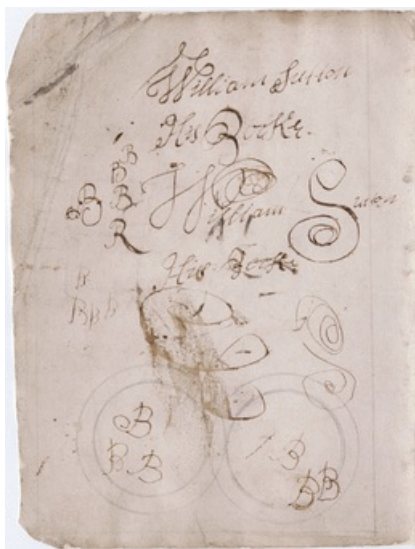 William Sutton
His Booke.
B
B
B B B
R
William Sutton
His Booke
B
B B B
B
B B
B
B B